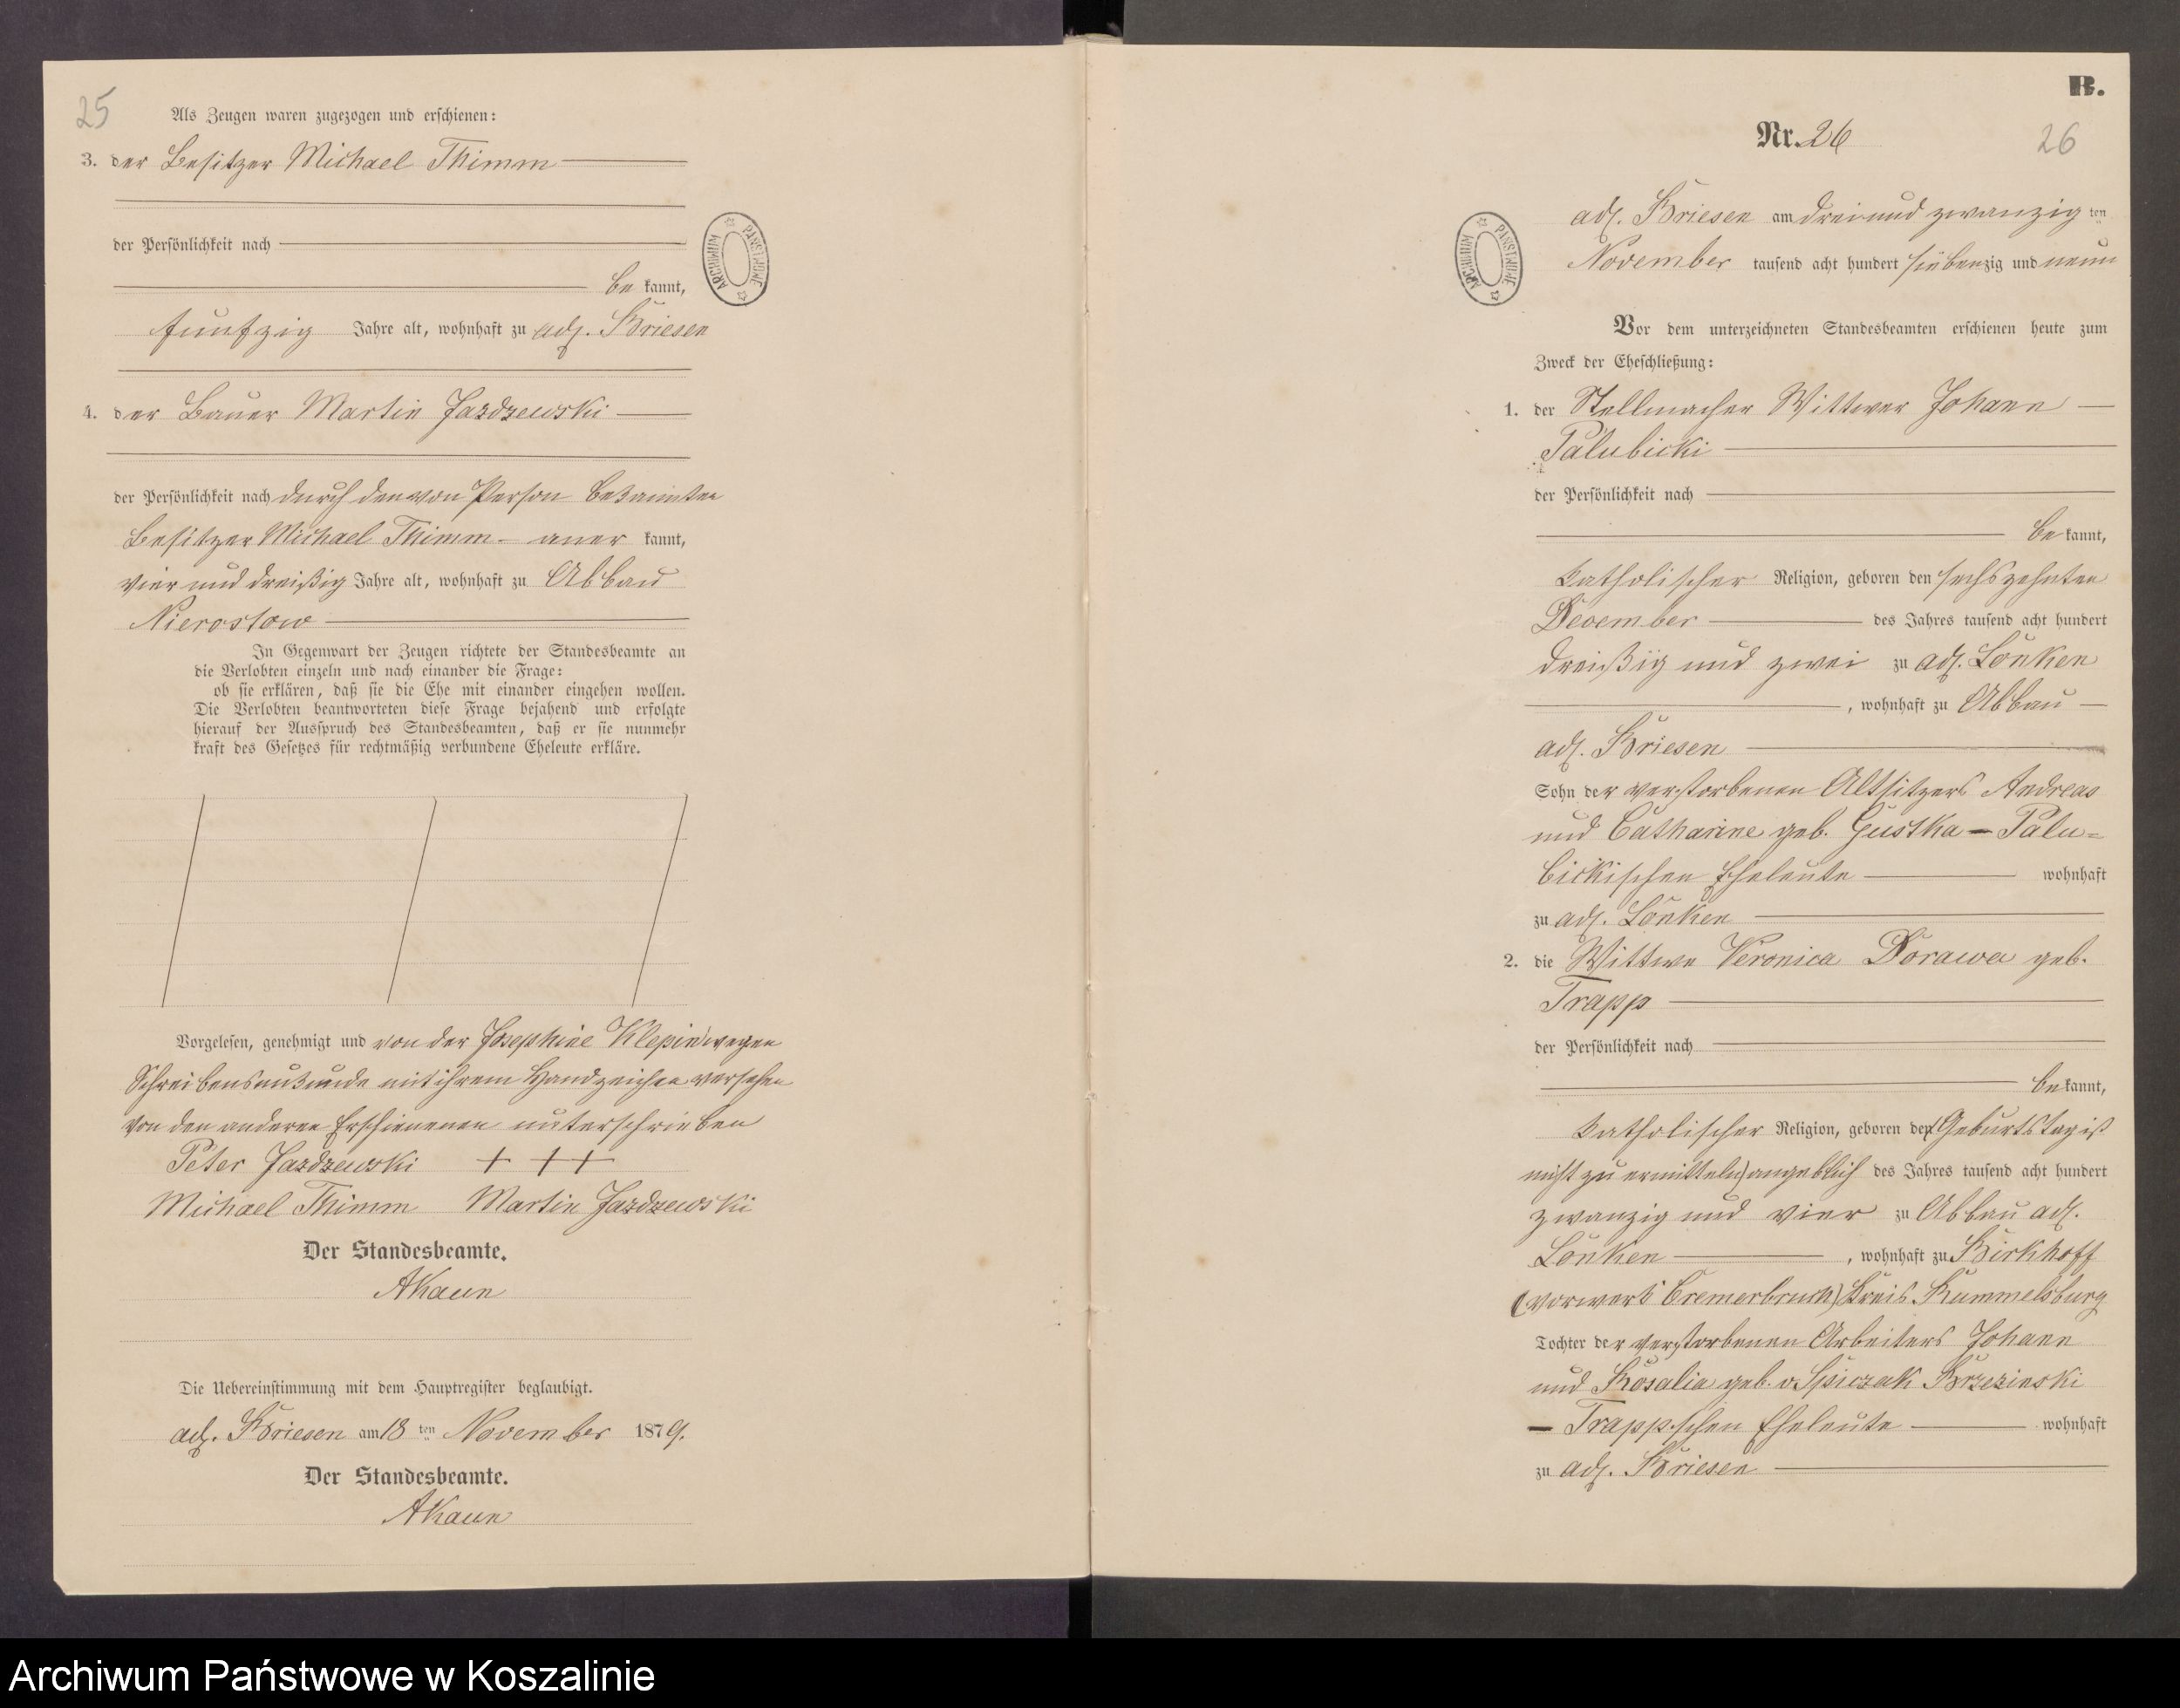 25
Als Zeugen waren zugezogen und erschienen:
3. der Besitzer Michael Thimm
der Persönlichkeit nach
be kannt,
funfzig Jahre alt, wohnhaft zu adl. Briesen
4. der Bauer Martin Jazdzewski
der Persönlichkeit nach durch den von Person bekannten
Besitzer Michael Thimm - aner kannt,
vier und dreißig Jahre alt, wohnhaft zu Abbau
Nierostow
In Gegenwart der Zeugen richtete der Standesbeamte an
die Verlobten einzeln und nach einander die Frage:
ob sie erklären, daß sie die Ehe mit einander eingehen wollen.
Die Verlobten beantworteten diese Frage bejahend und erfolgte
hierauf der Ausspruch des Standesbeamten, daß er sie nunmehr
kraft des Gesetzes für rechtmäßig verbundene Eheleute erkläre.
Vorgelesen, genehmigt und von der Josephine Klepin wegen
Schreibensunkunde mit ihrem Handzeichen versehen
von den anderen Erschienenen unterschrieben
Peter Jazdzewski + + +
Michael Thimm Martin Jazdzewski
Der Standesbeamte.
AKaun
Die Uebereinstimmung mit dem Hauptregister beglaubigt.
adl. Briesen am 18 ten November 1879.
Der Standesbeamte.
AKaun
ARCHIWUM PAŃSTWOWE
B.
Nr. 26
26
adl. Briesen am drei und zwanzig ten
November tausend acht hundert siebenzig und neun
ARCHIWUM PAŃSTWOWE
Vor dem unterzeichneten Standesbeamten erschienen heute zum
Zweck der Eheschließung:
1. der Stellmacher Wittwer Johann
Palubicki
der Persönlichkeit nach
be kannt,
katholischer Religion, geboren den sechszehnten
December des Jahres tausend acht hundert
dreißig und zwei zu adl. Lonken
, wohnhaft zu Abbau
adl. Briesen
Sohn der verstorbenen Altsitzers Andreas
und Catharine geb. Gustka - Palu=
bickischen Eheleute wohnhaft
zu adl. Lonken
2. die Wittwe Veronica Dorawa geb.
Trapp
der Persönlichkeit nach
be kannt,
katholischer Religion, geboren den (Geburtstag iß
nicht zu ermitteln) angeblich des Jahres tausend acht hundert
zwanzig und vier zu Abbau adl.
Lonken , wohnhaft zu Birkhoff
(Vorwerk Cremerbruch) Kreis Rummelsburg
Tochter der verstorbenen Arbeiters Johann
und Rosalia geb. v. Spiczak Brzezinski
- Trapp'schen Eheleute wohnhaft
zu adl. Briesen
Archiwum Państwowe w Koszalinie